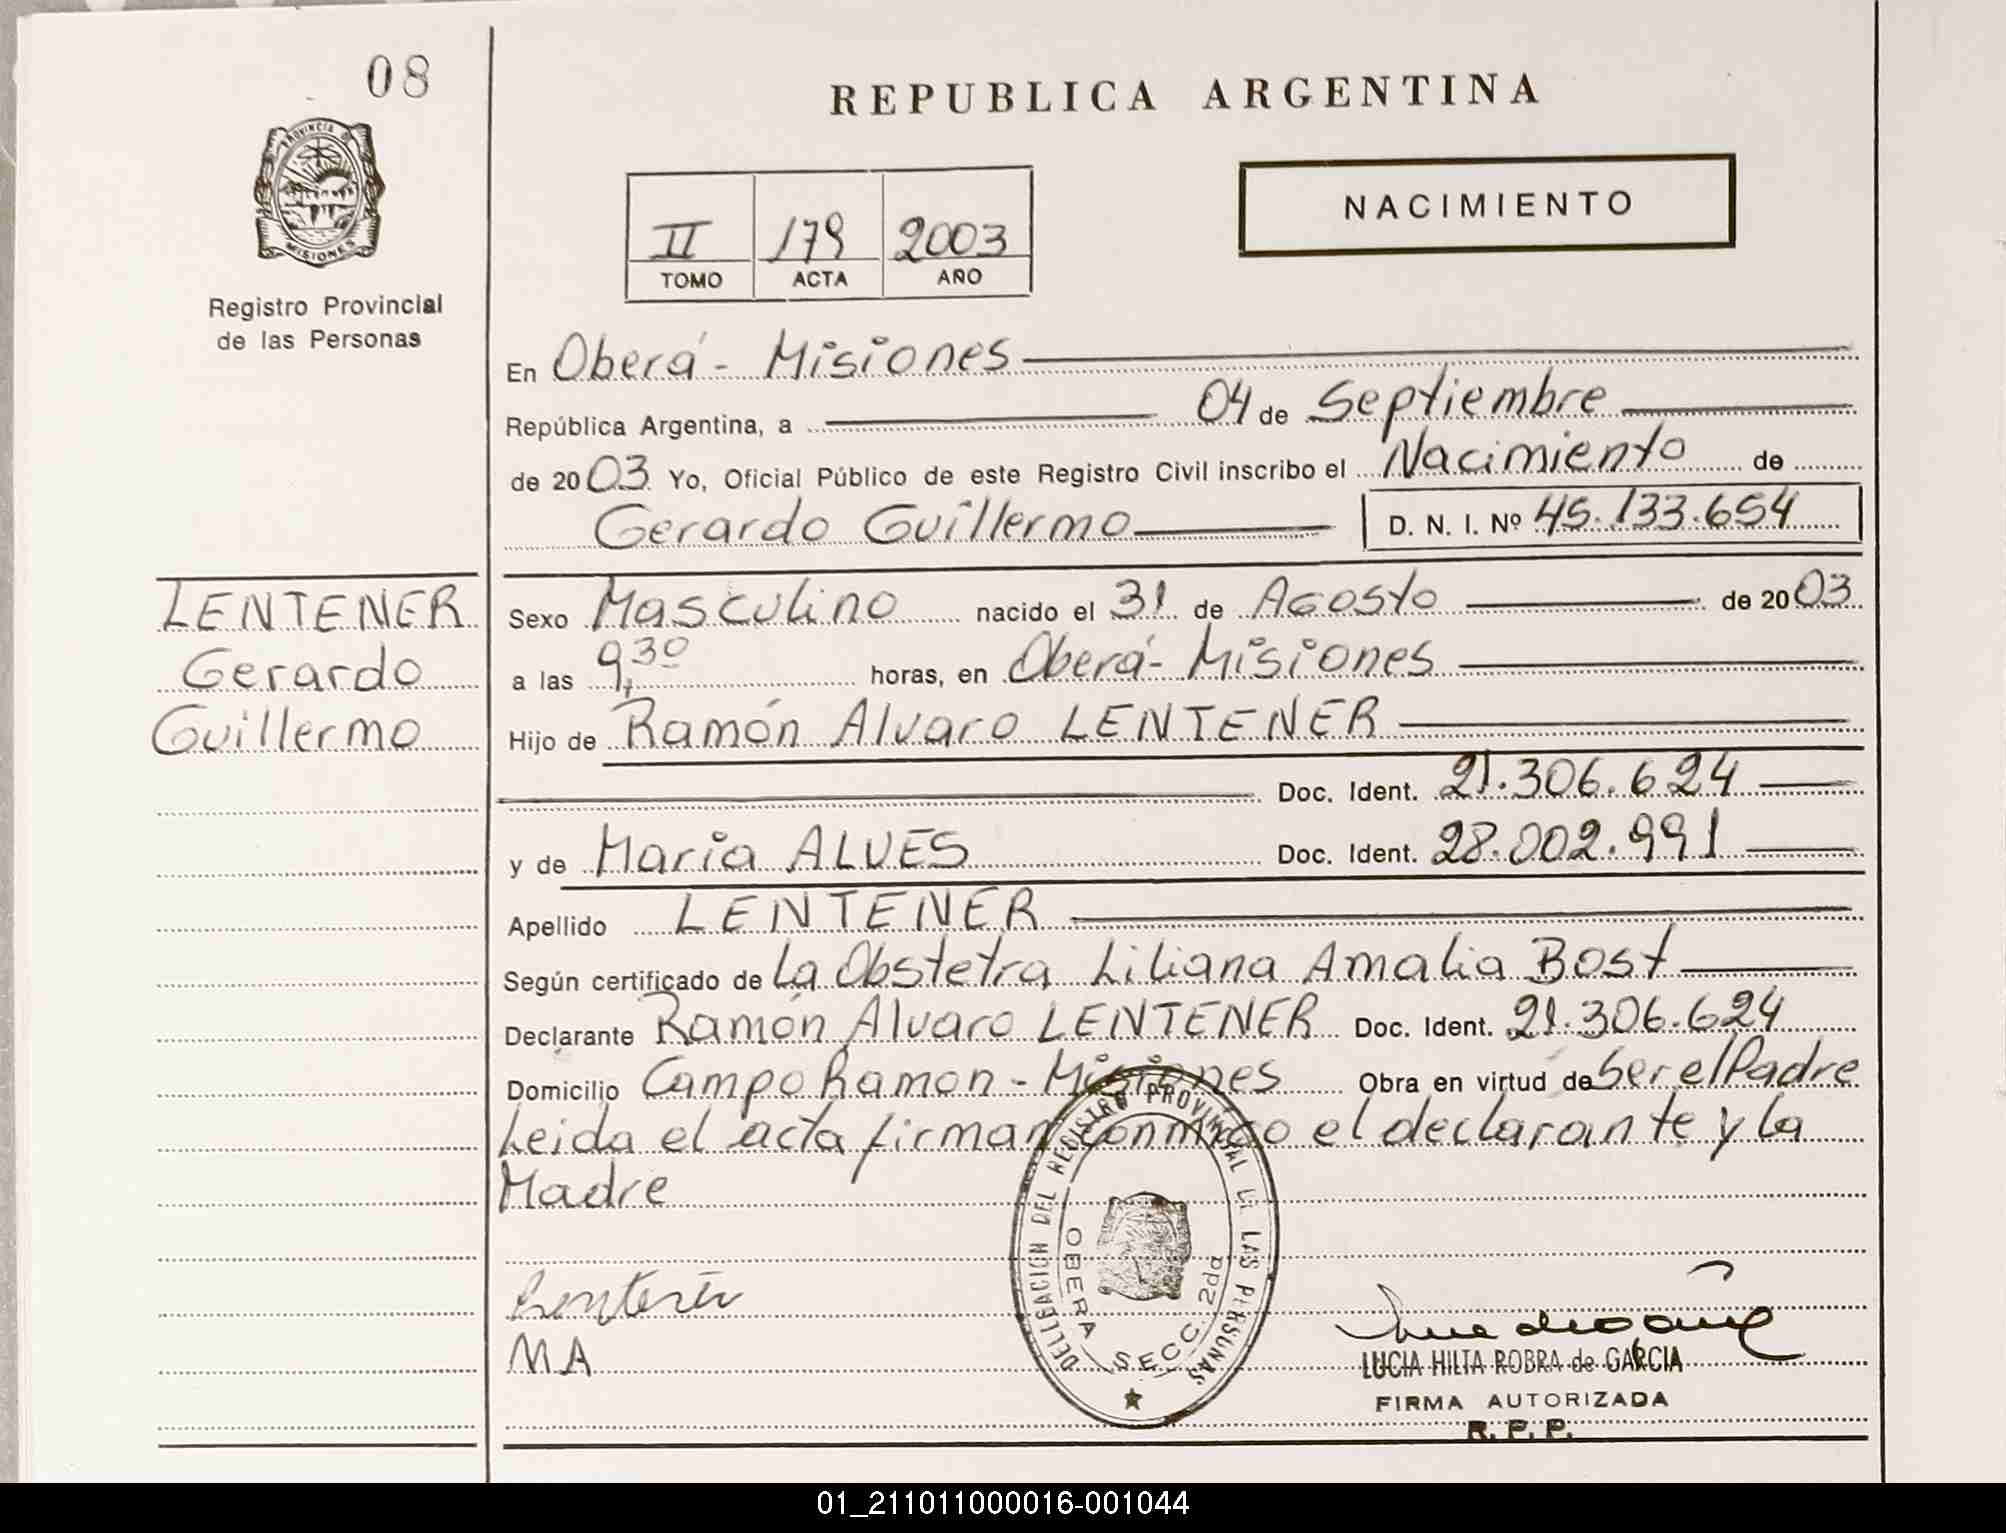 08
REPUBLICA ARGENTINA
PROVINCIA DE MISIONES
Registro Provincial
de las Personas
II 179 2003
TOMO ACTA AÑO
NACIMIENTO
En Oberá - Misiones
República Argentina, a 04 de Septiembre
de 2003 Yo, Oficial Público de este Registro Civil inscribo el Nacimiento de
Gerardo Guillermo D. N. I. Nº 45.133.654
LENTENER
Gerardo
Guillermo
Sexo Masculino nacido el 31 de Agosto de 2003
a las 9,30 horas, en Oberá - Misiones
Hijo de Ramón Alvaro LENTENER
Doc. Ident. 21.306.624
y de María ALVES Doc. Ident. 28.002.991
Apellido LENTENER
Según certificado de La Obstetra Liliana Amalia Bost
Declarante Ramón Alvaro LENTENER Doc. Ident. 21.306.624
Domicilio Campo Ramon - Misiones Obra en virtud de Ser el Padre
Leida el acta firman conmigo el declarante y la
Madre
DELEGACION DEL REGISTRO PROVINCIAL DE LAS PERSONAS
OBERA SECC. 2da
MA
LUCIA HILTA ROBRA de GARCIA
FIRMA AUTORIZADA
R. P. P.
01_211011000016-001044